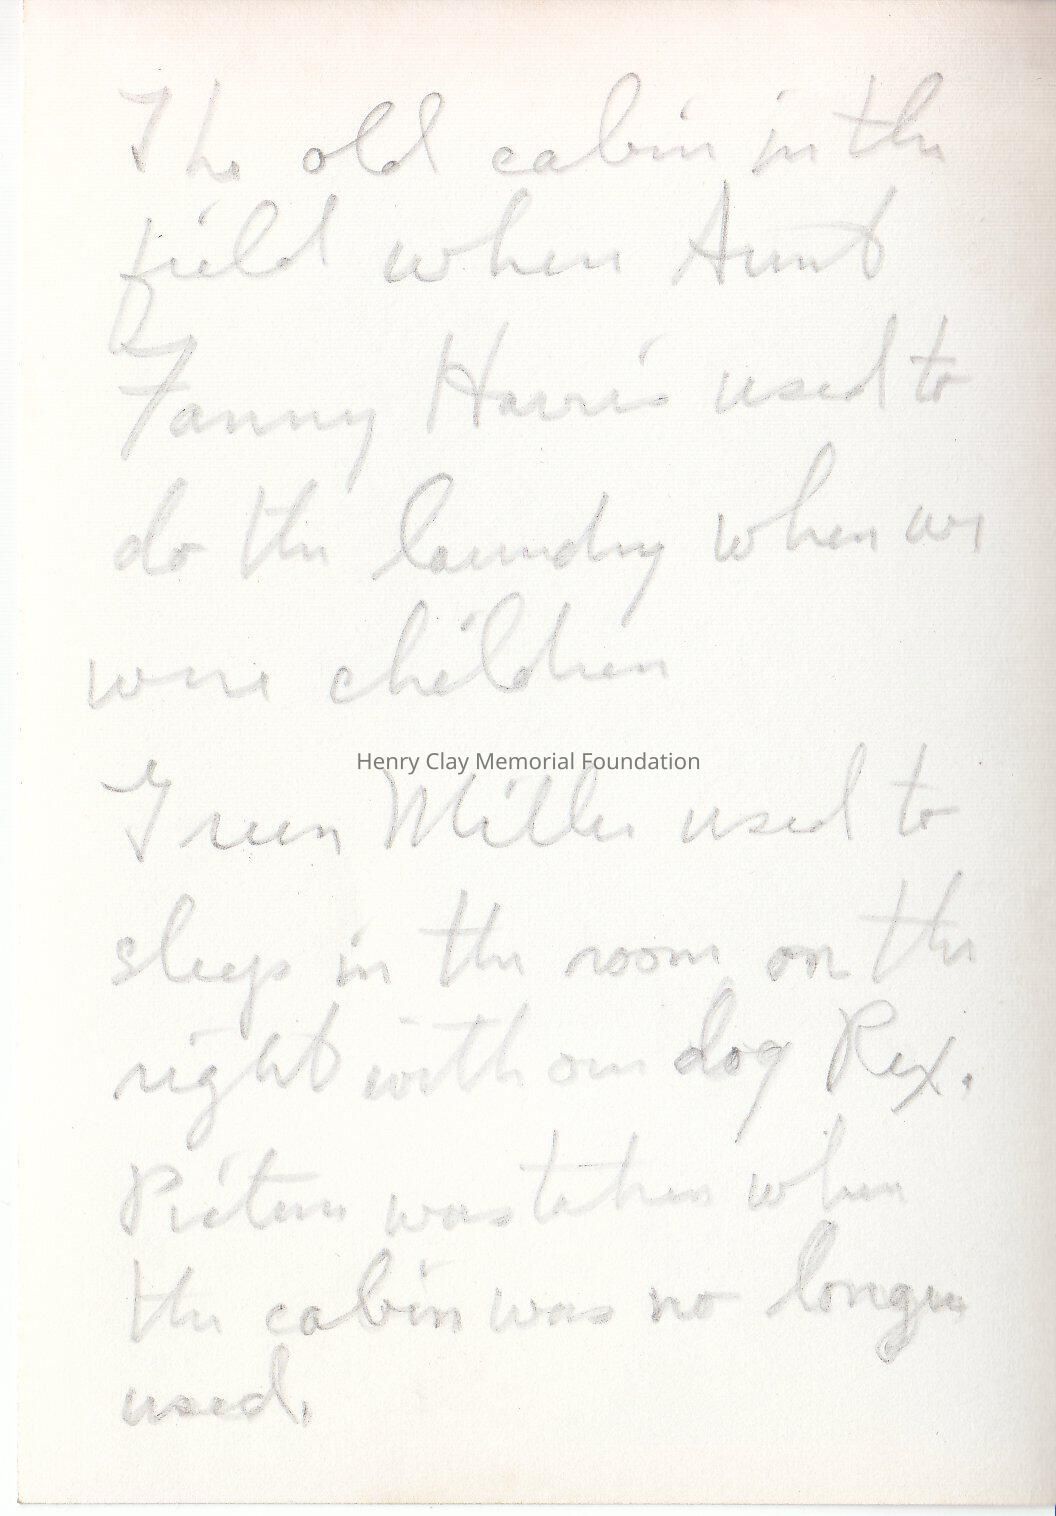 The old cabin in the
field when Aunt
Fanny Harris used to
do the laundry when we
were children
Henry Clay Memorial Foundation
Green Miller used to
sleep in the room on the
right with our dog Rex.
Picture was taken when
the cabin was no longer
used.